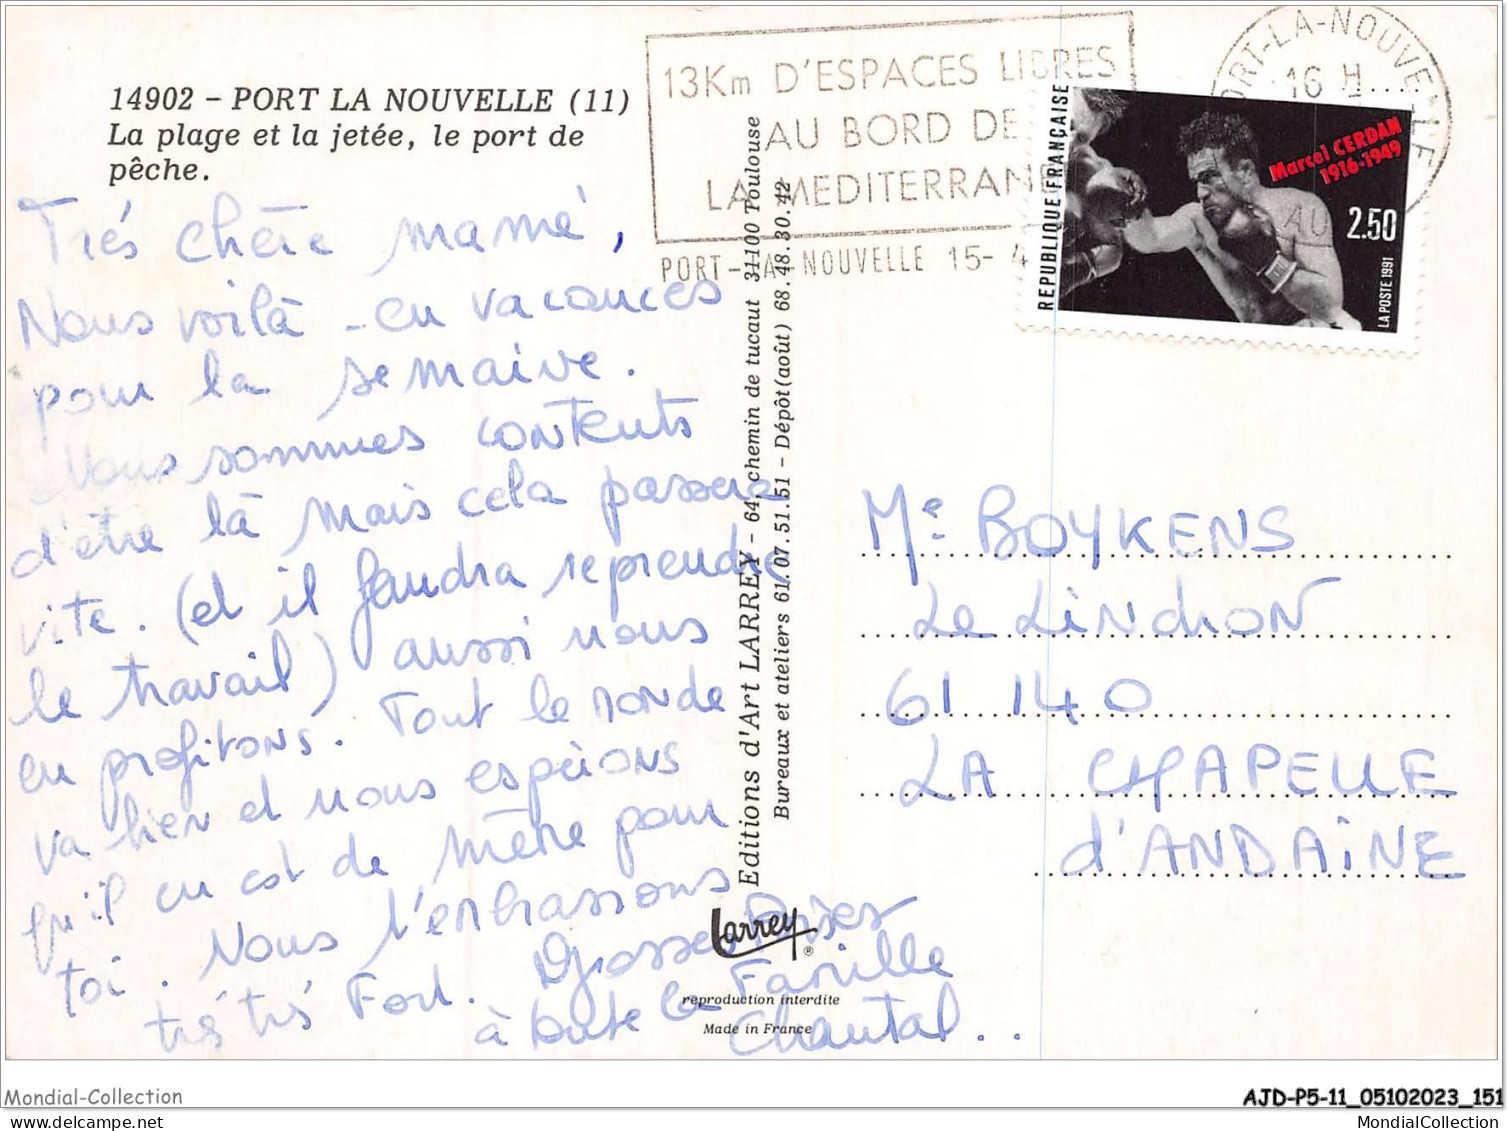 14902 – PORT LA NOUVELLE (11)
La plage et la jetée, le port de
pêche.
Très chère mamé,
Nous voilà - en vacances
pour la semaine.
Nous sommes contents
d'être là mais cela passera
vite. (et il faudra reprendre
le travail) aussi nous
en profitons. Tout le monde
va bien et nous espérons
qu'il en est de même pour
toi. Nous t'embrassons
très très Fort. Grosses Bises
à toute la Famille
Chantal..
Editions d'Art LARREY – 64, chemin de tucaut 31100 Toulouse
Bureaux et ateliers 61.07.51.51 – Dépôt (août) 68.48.30.42
Larrey
®
reproduction interdite
Made in France
13Km D'ESPACES LIBRES
AU BORD DE
LA MEDITERRANE
PORT-LA-NOUVELLE 15- 4
PORT-LA-NOUVELLE
16 H
AU
REPUBLIQUE FRANÇAISE
Marcel CERDAN
1916-1949
2.50
LA POSTE 1991
Me BOYKENS
Le Linchon
61 140
LA CHAPELLE
d'ANDAINE
Mondial-Collection
AJD-P5-11_05102023_151
https://www.delcampe.net
MondialCollection